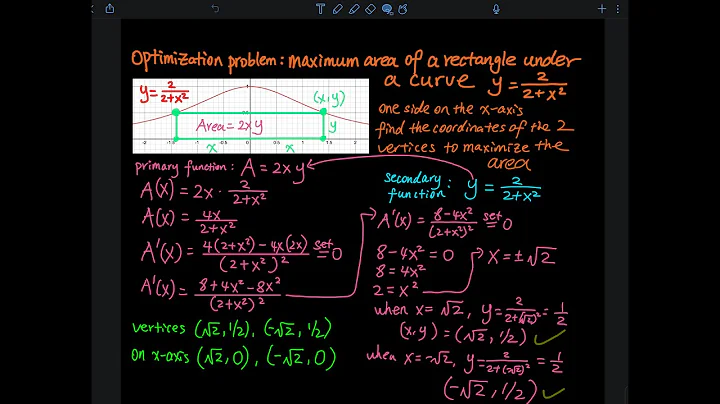 Optimization problem: maximum area of a rectangle under
a curve y = 2/(2+x²)
y = 2/(2+x²)
(x,y)
Area = 2xy
y
x x
one side on the x-axis
find the coordinates of the 2
vertices to maximize the
area
primary function: A = 2xy
A(x) = 2x · 2/(2+x²)
A(x) = 4x/(2+x²)
A'(x) = (4(2+x²) - 4x(2x))/(2+x²)² set = 0
A'(x) = (8+4x²-8x²)/(2+x²)²
secondary
function: y = 2/(2+x²)
A'(x) = (8-4x²)/(2+x²)² set = 0
8-4x² = 0
8 = 4x²
2 = x²
x = ±√2
when x = √2, y = 2/(2+(√2)²) = 1/2
(x,y) = (√2, 1/2)
when x = -√2, y = 2/(2+(-√2)²) = 1/2
(-√2, 1/2)
vertices (√2, 1/2), (-√2, 1/2)
on x-axis (√2, 0), (-√2, 0)